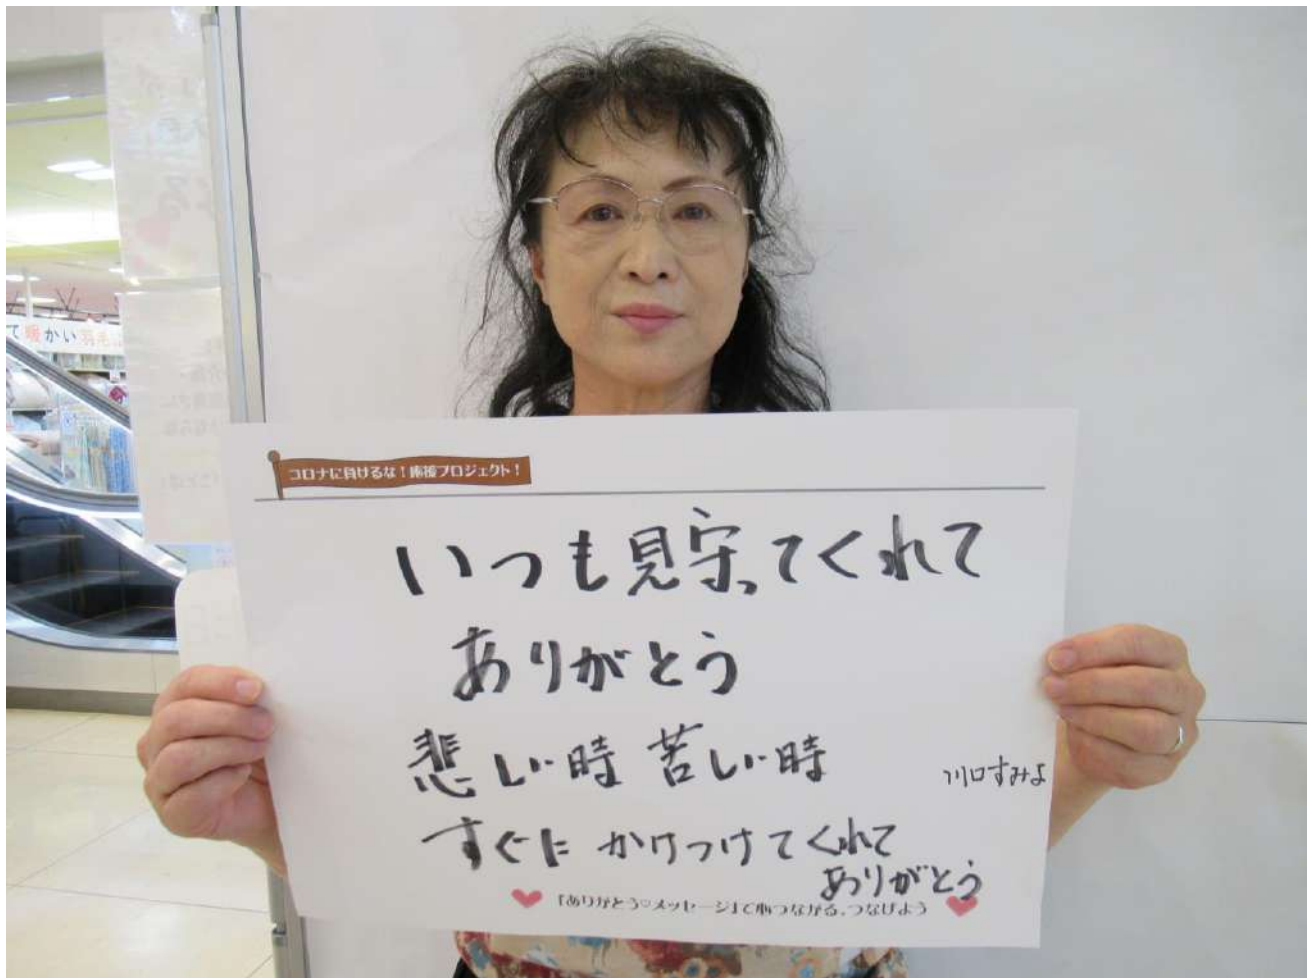 て暖かい羽毛
コロナに負けるな！応援プロジェクト！
いつも見守ってくれて
ありがとう
悲しい時 苦しい時
川口すみよ
すぐに かけつけてくれて
ありがとう
「ありがとう♡メッセージ」で心つながる、つなげよう